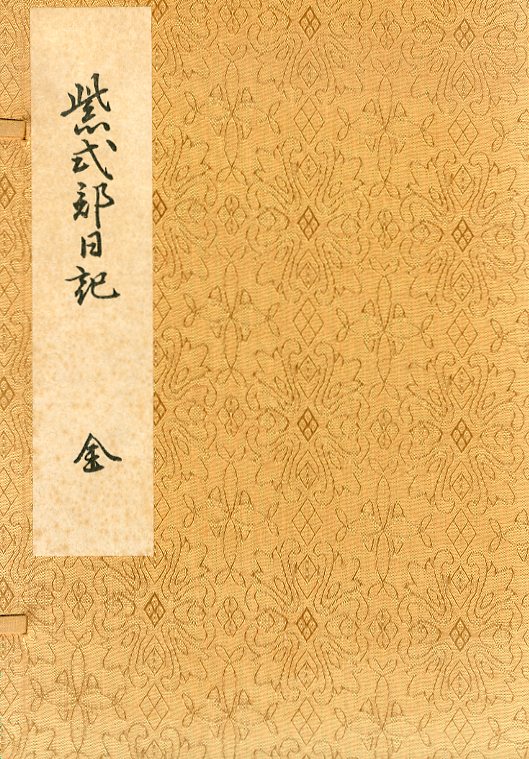 紫式部日記
全